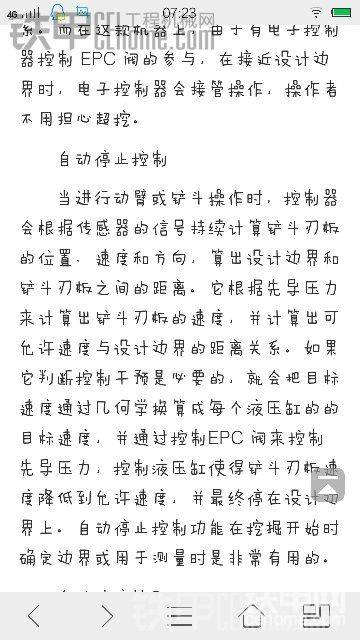 4G 07:23
铁甲 工程机械网 cehome.com
系。而在这款机器上，由于有电子控制
器控制 EPC 阀的参与，在接近设计边
界时，电子控制器会接管操作，操作者
不用担心超挖。
自动停止控制
当进行动臂或铲斗操作时，控制器
会根据传感器的信号持续计算铲斗刃板
的位置、速度和方向，算出设计边界和
铲斗刃板之间的距离。它根据先导压力
来计算出铲斗刃板的速度，并计算出可
允许速度与设计边界的距离关系。如果
它判断控制干预是必要的，就会把目标
速度通过几何学换算成每个液压缸的的
目标速度，并通过控制EPC 阀来控制
先导压力，控制液压缸使得铲斗刃板速
度降低到允许速度，并最终停在设计边
界上。自动停止控制功能在挖掘开始时
确定边界或用于测量时是非常有用的。